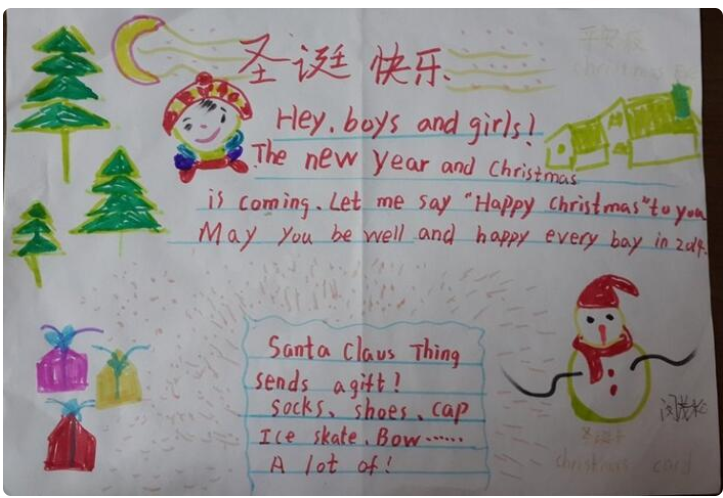 圣诞快乐
平安夜
Hey, boys and girls!
The new year and Christmas
is coming. Let me say "Happy christmas" to you
May you be well and happy every bay in 2014.
Santa Claus Thing
sends a gift!
socks、shoes、cap
Ice skate. Bow……
A lot of!
christmas card